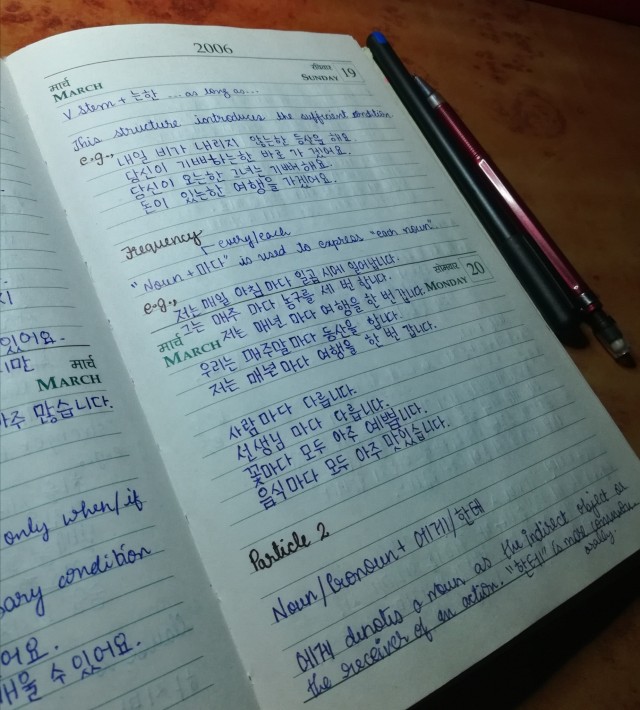 있어요.
지만
मार्च
MARCH
아주 많습니다.
only when/if
condition
어요.
배울 수 있어요.
2006
मार्च
MARCH
SUNDAY 19
V stem + 는한 ... as long as...
This structure introduces the sufficient condition
e.g., 내일 비가 내리지 않는한 등산을 해요.
당신이 기뻐하는한 바로 가 겠어요.
당신이 오는한 그녀는 기뻐해요.
돈이 있는한 여행을 가겠어요.
Frequency
every/each
"Noun + 마다" is used to express "each noun".
e.g., 저는 매일 아침 마다 일곱 시에 일어납니다.
그는 매주 마다 농구를 세 번 합니다.
सोमवार
MONDAY 20
मार्च
MARCH
저는 매년 마다 여행을 한 번 갑니다.
우리는 매주말 마다 등산을 합니다.
저는 매년 마다 여행을 한 번 갑니다.
사람 마다 다릅니다.
선생님 마다 다릅니다.
꽃마다 모두 아주 예쁩니다.
음식마다 모두 아주 맛있습니다.
Particle 2
Noun/Pronoun + 에게/한테
에게 denotes a noun as the indirect object or
the receiver of an action. "한테" is more